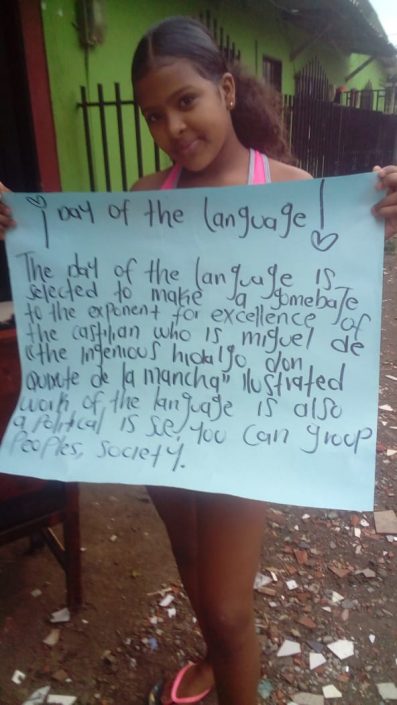 ¡ Day of the language!
The day of the language is
selected to make a gomebaje
to the exponent for excellence of
the castilian who is miguel de
"the ingenious hidalgo don
Quixote de la mancha" Ilustrated
work of the language is also
a political is see, you can group
Peoples, society.